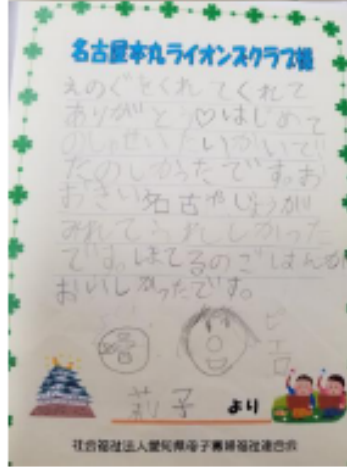 名古屋本丸ライオンズクラブ様
えのぐをくれてくれて
ありがとう♡はじめて
のしゃせいたいかいで
たのしかったです。お
おきい名古やじょうが
みれてうれしかった
です。ほてるのごはんが
おいしかったです。
ピエロ
莉子 より
社会福祉法人愛知県母子寡婦福祉連合会